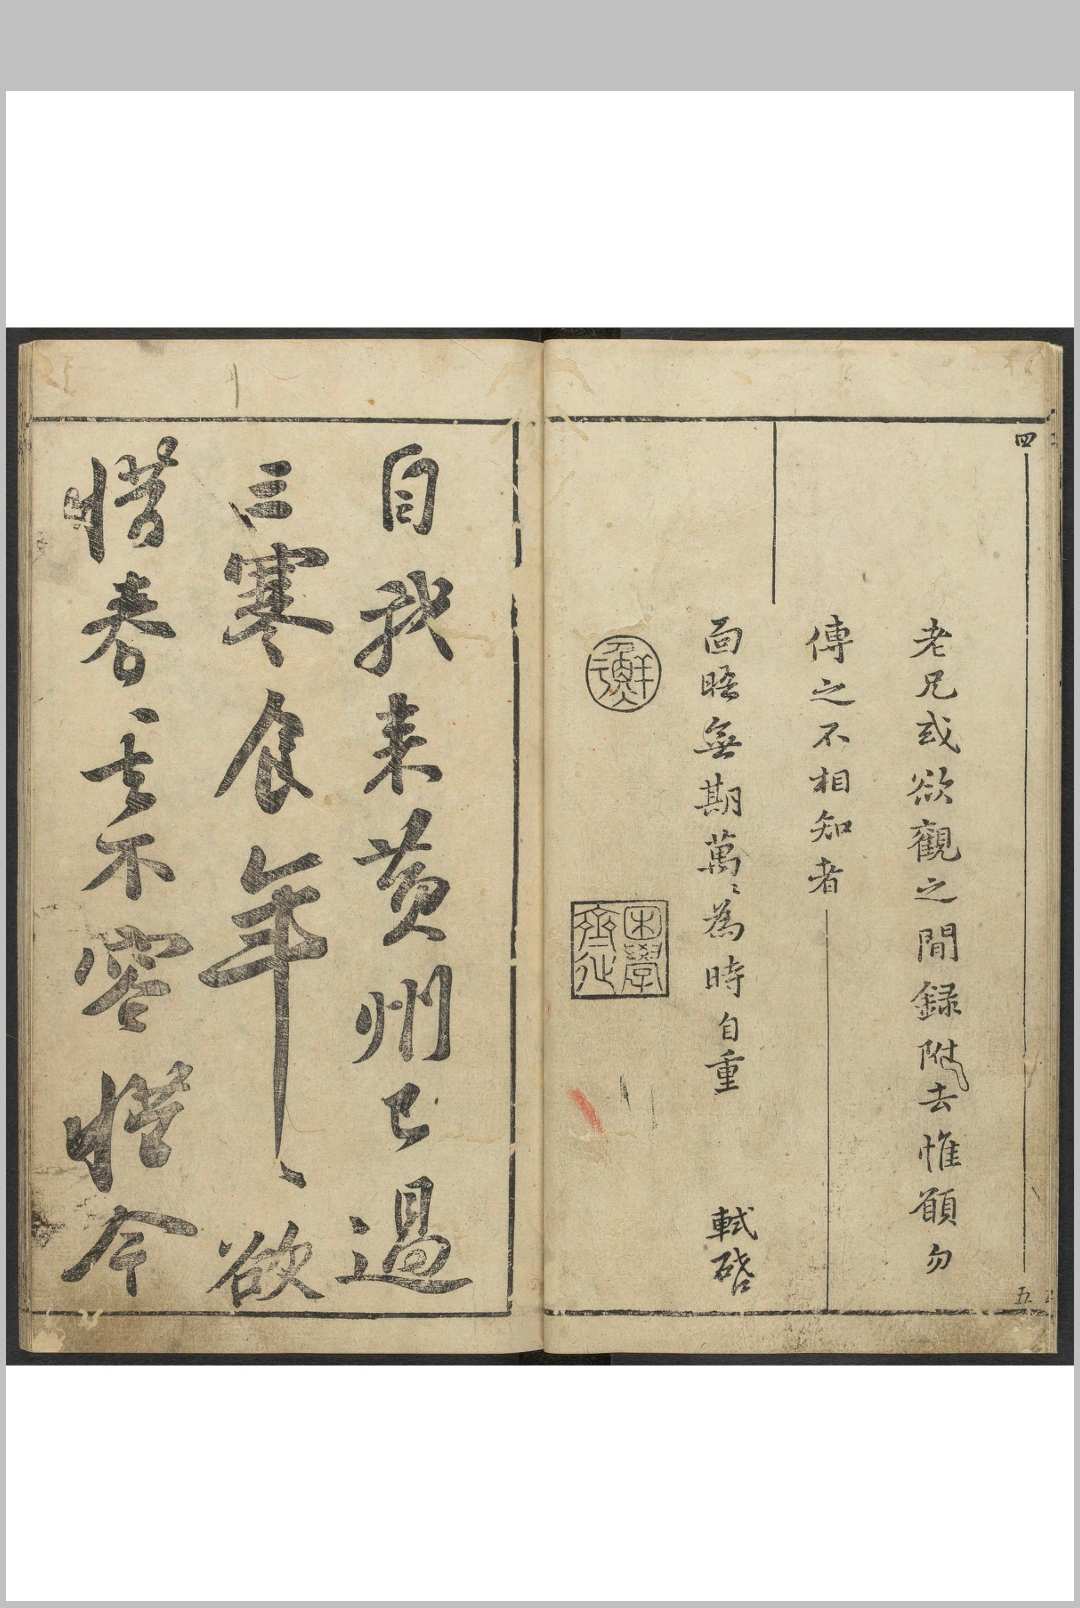 四
老兄或欲觀之間録附去惟願勿
五
傳之不相知者
面晤無期萬〻為時自重 軾啓
困學齊
自我来黄州已過
三寒食年〻欲
惜春〻去不容惜今